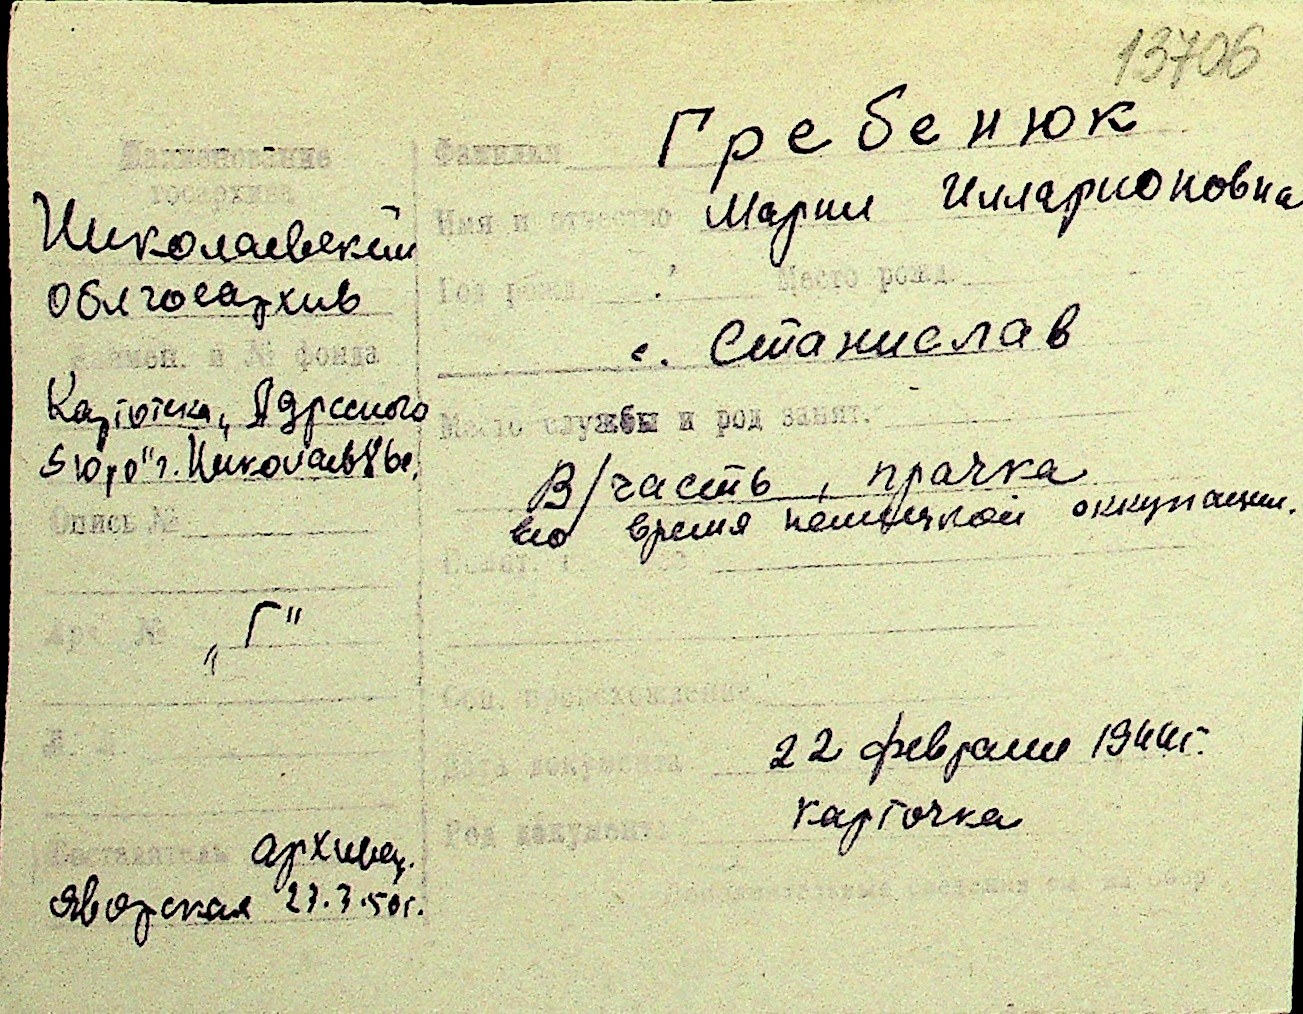 13706
Наименование
госархива
Николаевский
Облгосархив
Наимен. и № фонда
Картотека „Адресного
бюро" г. Николаев
Опись №
Арх. №
„Г"
Составитель архивар.
Яворская
Фамилия Гребенюк
Имя и отчество Мария Илларионовна
Год рожд. Место рожд.
с. Станислав
Место службы и род занят.
В/часть, прачка
во время немецкой оккупации.
Соц. происхождение
Дата документа 22 февраля 1944г.
Род документа карточка
Дополнительные сведения см. на обор.